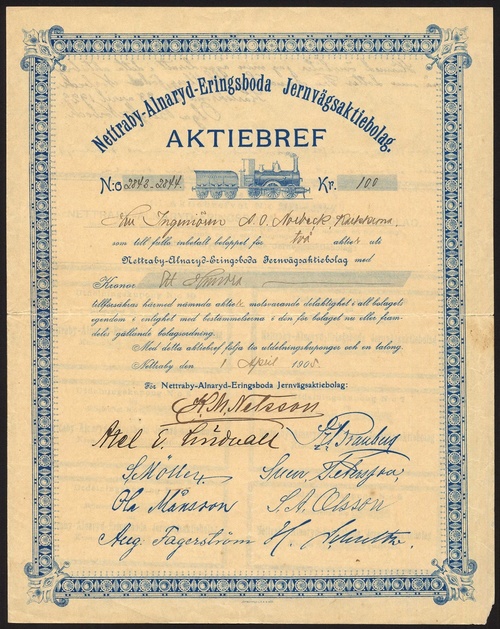 Nettraby-Alnaryd-Eringsboda Jernvägsaktiebolag.
AKTIEBREF
N:o 2843-2844. Kr. 100
Ingeniören A. O. Norbeck, Karlskrona,
som till fulla inbetalt beloppet för två aktier uti
Nettraby-Alnaryd-Eringsboda Jernvägsaktiebolag med
Kronor Ett Hundra
tillförsäkras härmed nämnda aktier motsvarande delaktighet i all bolagets
egendom i enlighet med bestämmelserna i den för bolaget nu eller fram-
deles gällande bolagsordning.
Med detta aktiebref följa tio utdelningskuponger och en talong.
Nettraby den 1 April 1905.
För Nettraby-Alnaryd-Eringsboda Jernvägsaktiebolag:
K. M. Nelsson
Axel E. Lindvall
S. Möller Sven Petersson,
Ola Månsson S. A. Olsson
Aug. Fagerström H.